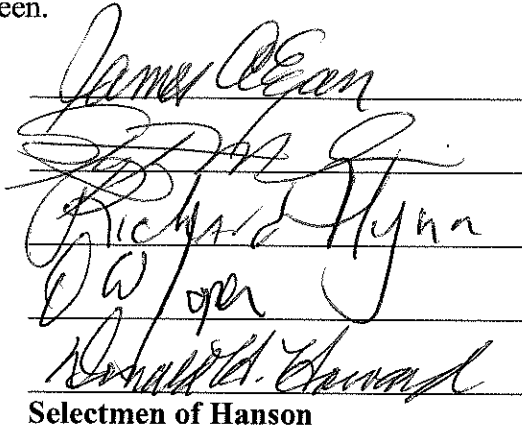 een.
James A Egan
Richard Flynn
D W
Donald H. Howard
Selectmen of Hanson